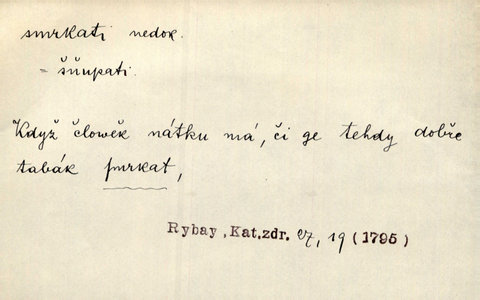 smrkati nedok.
- šňupati.
Když človĕk nátku má, či ge tehdy dobře
tabák ſmrkat,
Rybay, Kat.zdr. 27, 19 (1795)